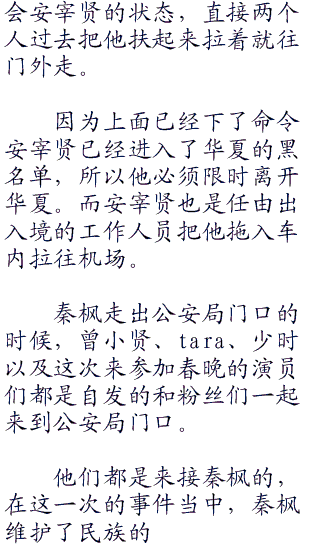 会安宰贤的状态，直接两个
人过去把他扶起来拉着就往
门外走。
因为上面已经下了命令
安宰贤已经进入了华夏的黑
名单，所以他必须限时离开
华夏。而安宰贤也是任由出
入境的工作人员把他拖入车
内拉往机场。
秦枫走出公安局门口的
时候，曾小贤、tara、少时
以及这次来参加春晚的演员
们都是自发的和粉丝们一起
来到公安局门口。
他们都是来接秦枫的，
在这一次的事件当中，秦枫
维护了民族的